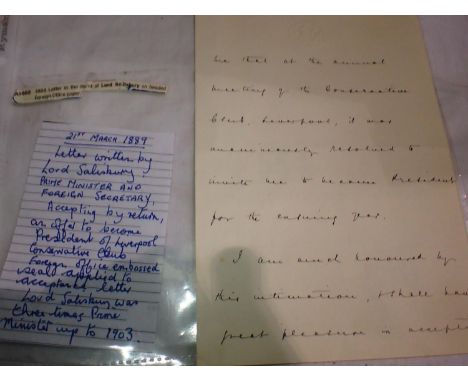 1889 Letter in the hand of Lord Salisbury on headed
Foreign Office paper
21ST MARCH 1889
Letter written by
Lord Salisbury
PRIME MINISTER AND
FOREIGN SECRETARY,
Accepting by return,
an offer to become
President of Liverpool
Conservative Club
Foreign office embossed
seal applied to
acceptance letter
Lord Salisbury was
three-times Prime
Minister up to 1903.
me that at the annual
meeting of the Conservative
Club, Liverpool, it was
unanimously resolved to
invite me to become President
for the ensuing year.
I am much honoured by
this intimation, & shall have
great pleasure in accepting